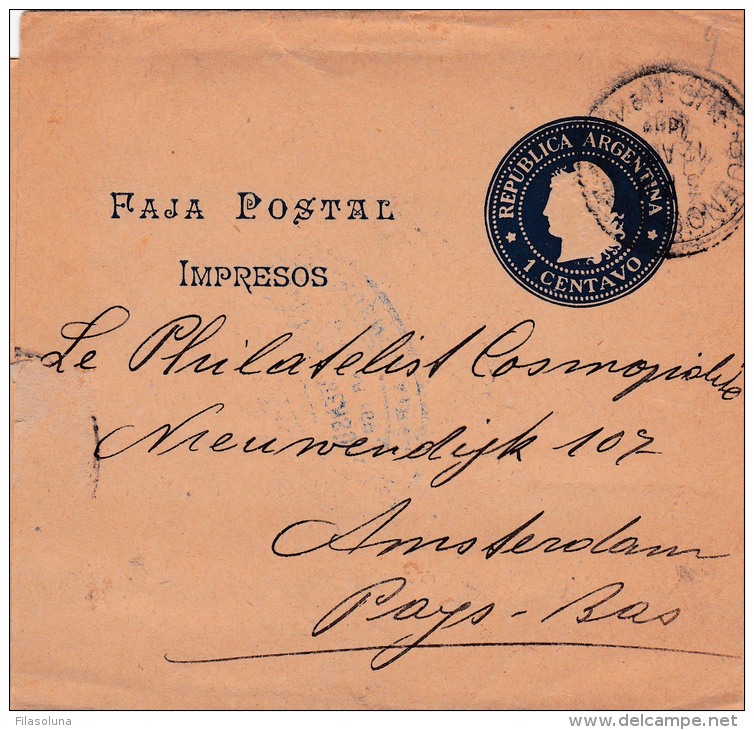 REPUBLICA ARGENTINA
1 CENTAVO
FAJA POSTAL
IMPRESOS
Le Philatelist Cosmopolite
Nieuwendijk 107
Amsterdam
Pays-Bas
Filasoluna
delcampe.net